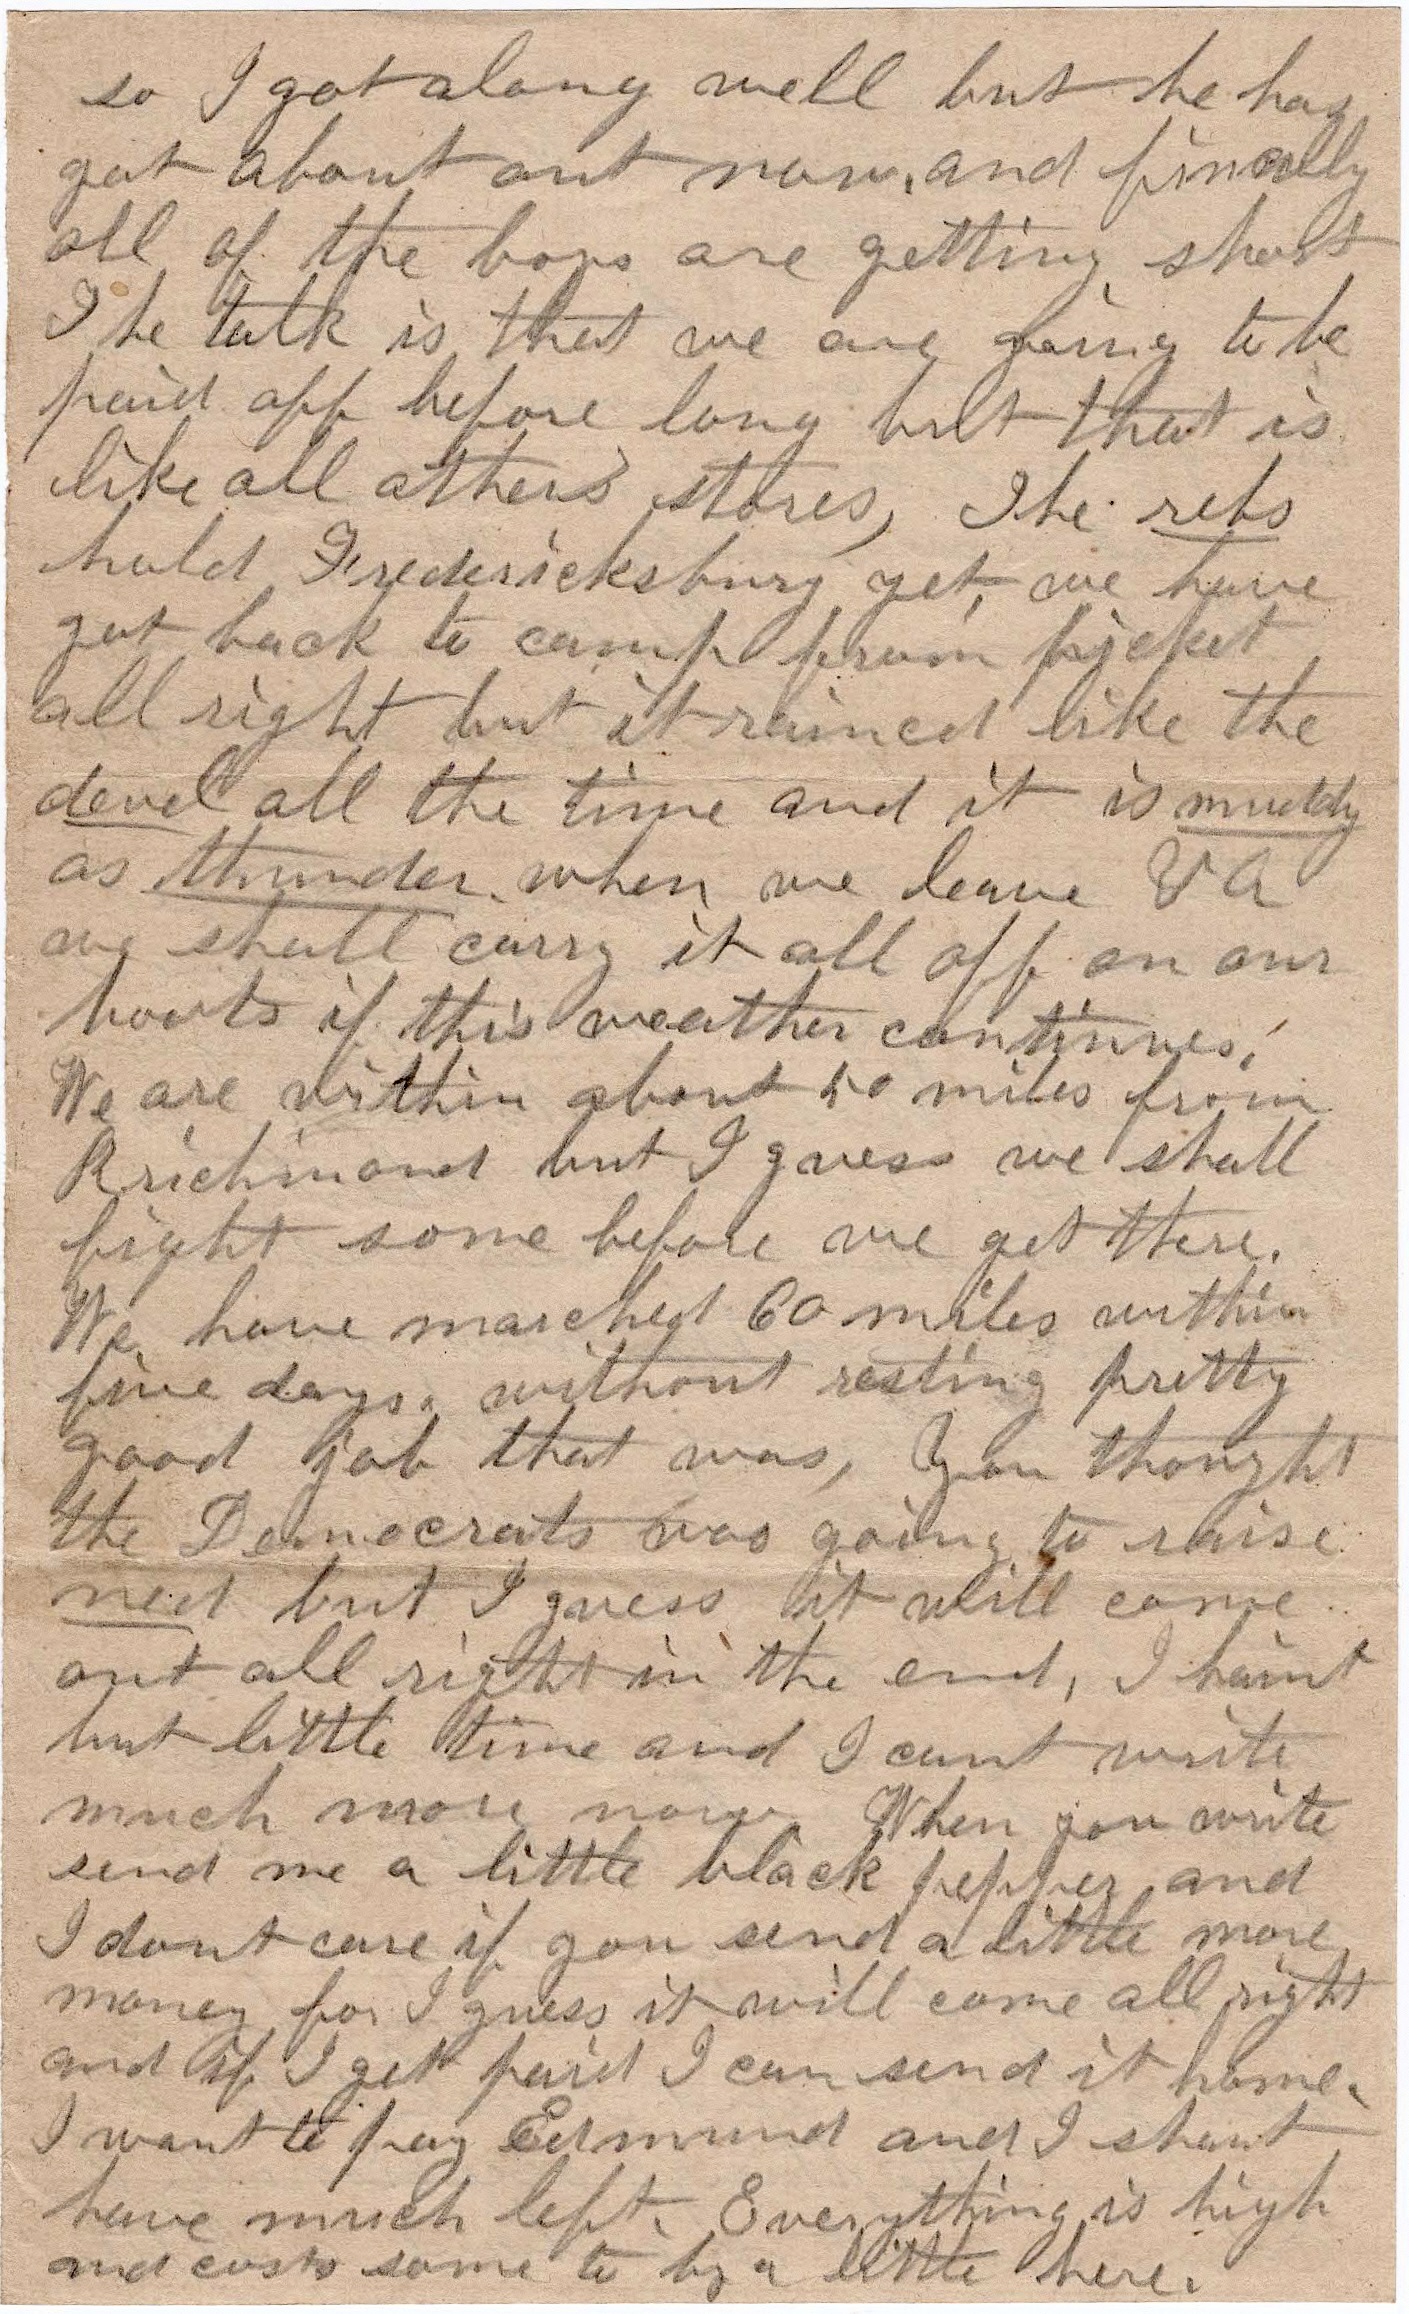 so I got along well but he has
got about out now. and finally
all of the boys are getting short
The talk is that we are going to be
paid off before long but that is
like all others stores, The rebs
hold Fredericksburg yet, we have
got back to camp from picket
all right but it rained like the
devel all the time and it is muddy
as thunder. when we leave VA
we shall carry it all off on our
boots if this weather continues.
We are within about 50 miles from
Richmond but I guess we shall
fight some before we get there.
We have marched 60 miles within
five days. without resting pretty
good job that was, You thought
the Democrats was going to raise
ned but I guess it will come
out all right in the end, I haint
but little time and I cant write
much more now. When you write
send me a little black pepper and
I dont care if you send a little more
money for I guess it will come all right
and if I get paid I can send it home.
I want to pay Edmund and I shant
have much left. Everything is high
and costs some to by a little here.